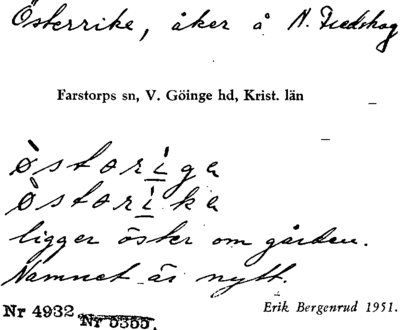 Österrike, åker å N. Fredskog
Farstorps sn, V. Göinge hd, Krist. län
östoriga
östorika
ligger öster om gården.
Namnet är nytt.
Nr 4932 Nr 5355.
Erik Bergenrud 1951.